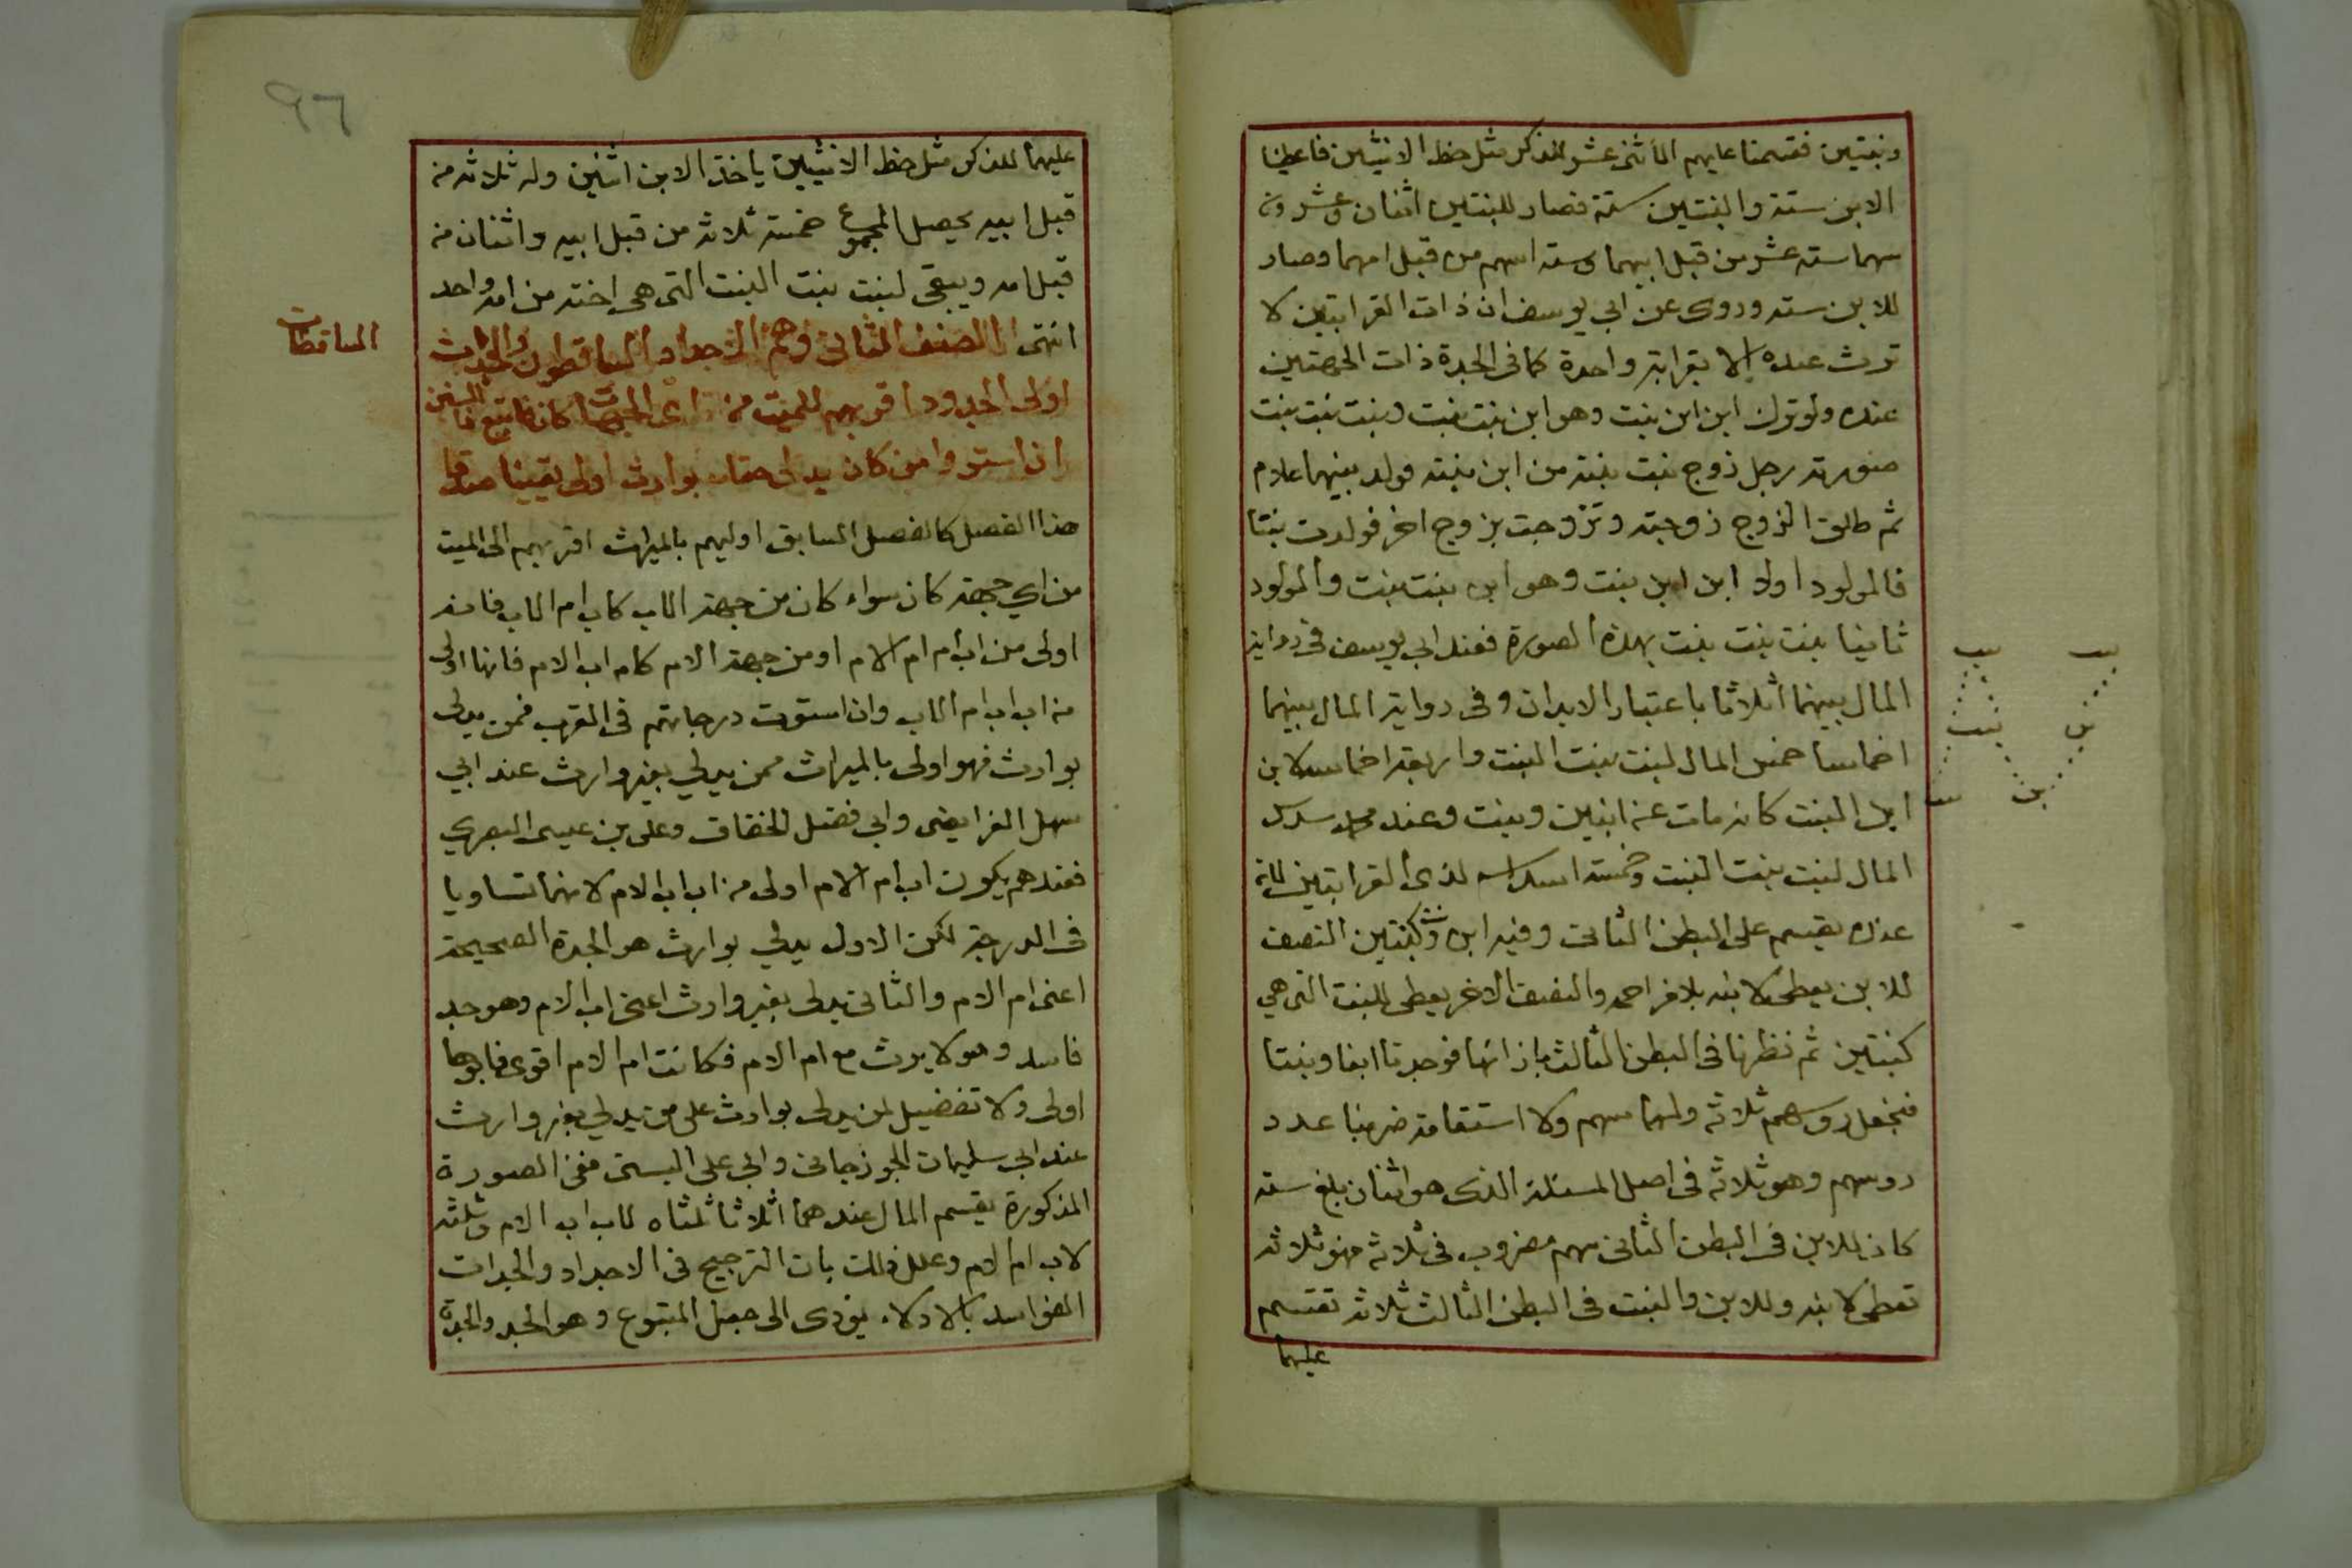 وبنتين فقسمنا عليهم الاثنى عشر للذكر مثل حظ الانثيين فاعطينا
الابن ستة والبنتين ستة فصار للبنتين اثنان وعشرون
سهما ستة عشر من قبل ابيهما وستة اسهم من قبل امهما وصار
للابن ستة وروى عن ابي يوسف ان ذات القرابتين لا
ترث عنده الا بقرابة واحدة كما فى الجدة ذات الجهتين
عنده ولو ترك ابن ابن بنت وهو ابن بنت بنت وبنت بنت بنت
صورته رجل زوج بنت بنته من ابن بنته فولد بينهما غلام
ثم طلق الزوج زوجته وتزوجت بزوج اخر فولدت بنتا
فالمولود اولا ابن ابن بنت وهو ابن بنت بنت والمولود
ثانيا بنت بنت بنت بهذه الصورة فعند ابي يوسف فى رواية
المال بينهما اثلاثا باعتبار الابدان وفى رواية المال بينهما
اخماسا خمس المال لبنت بنت البنت واربعة اخماسه لابن
ابن البنت كانه مات عن ابنين وبنت وعند محمد سدس
المال لبنت بنت البنت وخمسة اسداسه لذى القرابتين لانه
عنده يقسم على البطن الثانى وفيه ابن وبنت كبنتين النصف
للابن يعطى لابنه بلا مزاحمة والنصف الاخر يعطى للبنت التى هي
كبنتين ثم نظرنا فى البطن الثالث بازائها فوجدنا ابنا وبنتا
فنجعل روسهم ثلاثة ولهما سهم ولا استقامة ضربنا عدد
روسهم وهو ثلاثة فى اصل المسئلة الذى هو اثنان بلغ ستة
كان للابن فى البطن الثانى سهم مضروب فى ثلاثة فهو ثلاثة
تعطى لابنه وللابن والبنت فى البطن الثالث ثلاثة تقتسم
عليهما
بنت بنت
ابن بنت
ابن بنت
٩٦
عليهما للذكر مثل حظ الانثيين ياخذ الابن اثنين وله ثلاثة من
قبل ابيه يحصل المجموع خمسة ثلاثة من قبل ابيه واثنان من
قبل امه ويبقى لبنت بنت البنت التى هى اخته من امه واحد
انتهى الصنف الثانى وهم الاجداد الساقطون والجدات
الساقطات
اولى الجدود اقربهم للميت من اى الجهات كان فاتبع السنن
ان استووا من كان يدلى حقا بوارث اولى يقينا صدقا
هذا الفصل كالفصل السابق اوليهم بالميراث اقربهم الى الميت
من اي جهة كان سواء كان من جهة الاب كاب ام الاب فانه
اولى من اب ام ام الام او من جهة الام كام اب الام فانها اولى
من اب اب ام الاب وان استوت درجاتهم فى القرب فمن يدلى
بوارث فهو اولى بالميراث ممن يدلي بغير وارث عند ابي
سهل الفرايضى وابي فضل الخفاف وعلى بن عيسى البصري
فعندهم يكون اب ام الام اولى من اب اب الام لانهما تساويا
فى الدرجة لكن الاول يدلي بوارث هو الجدة الصحيحة
اعنى ام الام والثانى يدلى بغير وارث اعنى اب الام وهو جد
فاسد وهو لا يرث مع ام الام فكانت ام الام اقوى فابوها
اولى ولا تفضيل لمن يدلى بوارث على من يدلي بغير وارث
عند ابي سليمان الجوزجانى وابي على البستى ففى الصورة
المذكورة يقسم المال عندهما اثلاثا ثلثاه لاب اب الام وثلثه
لاب ام الام وعلل ذلك بان الترجيح فى الاجداد والجدات
الفواسد بالادلاء يؤدى الى جعل المتبوع وهو الجد والجدة